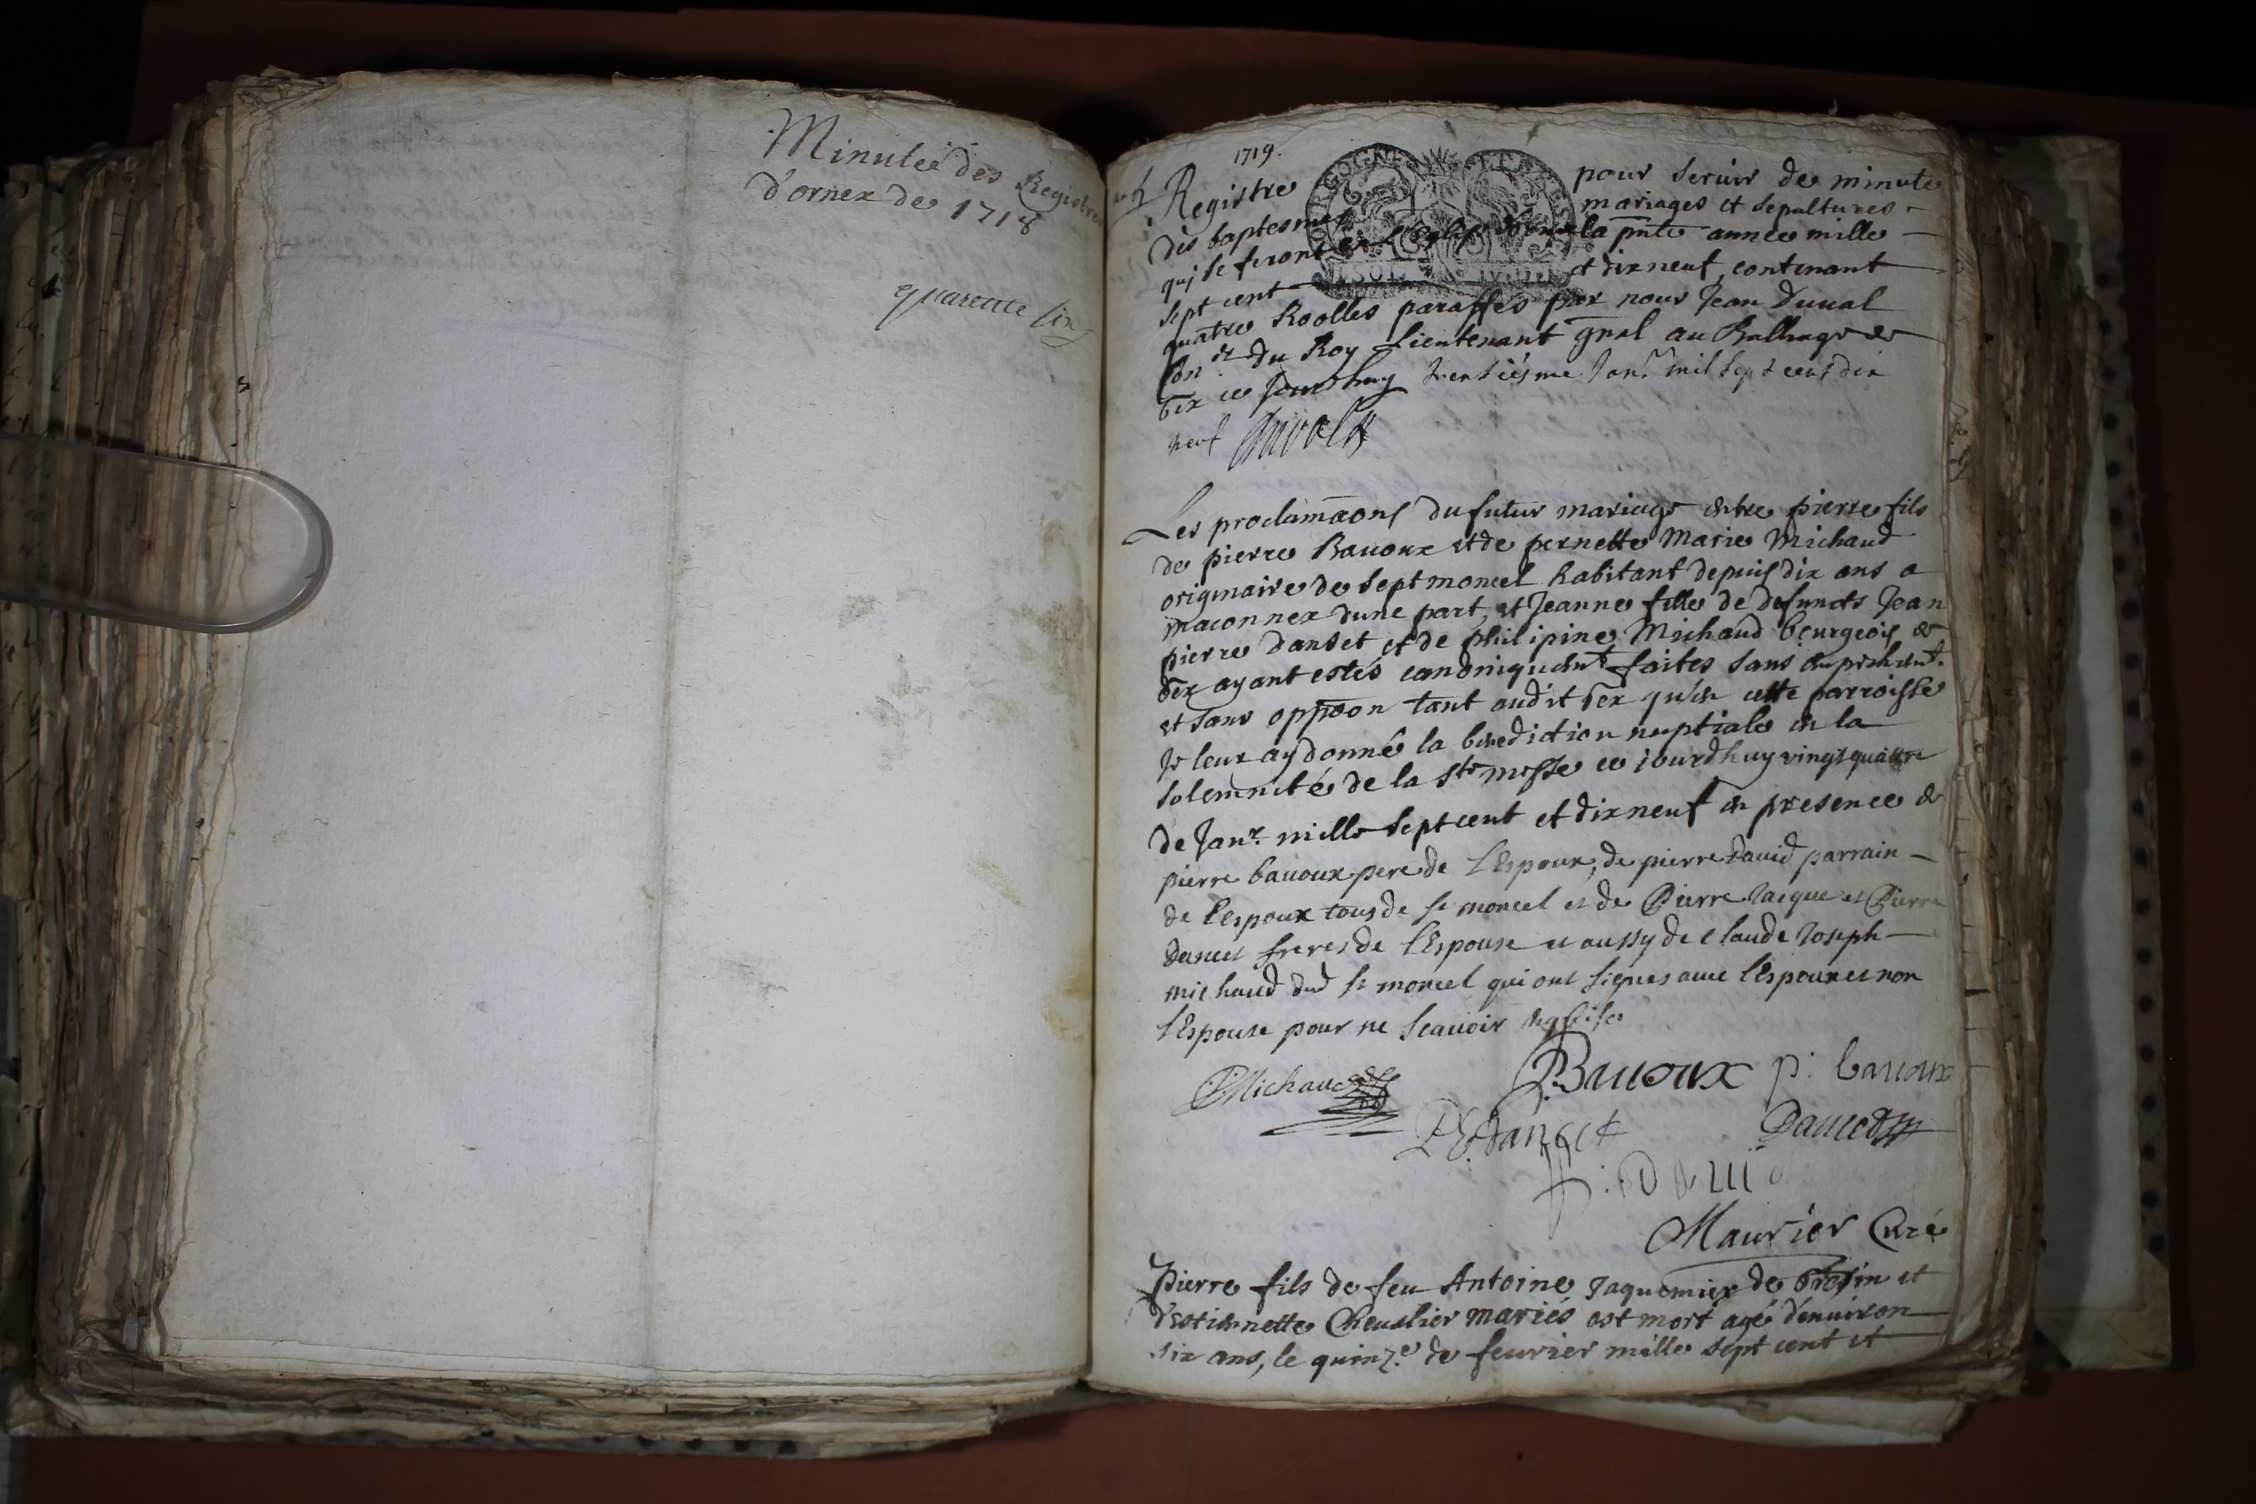 Minutte des Registres
d'ornex de 1718
quarente six
1719.
Registre pour seruir de minute
des baptesmes mariages et sepultures
qui se feront en l'eglise la pnte année mille
sept cent et dixneuf, contenant
quatre Roolles paraffés par nous Jean Duual
Con.er du Roy Lieutenant gnal au Balliage de
Gex ce jourdhuy trentiésme Janr. mil sept cens dix
neuf Duual
Les proclamãons du futur mariage entre pierre fils
de pierre Bauoux et de pernette Marie Michaud
originaire de Septmoncel habitant depuis dix ans a
maconnex dune part, et Jeanne fille de defuncts Jean
pierre danset et de philipine Michaud bourgeois de
Gex ayant estés canoniquemt. faites sans empechemt.
et sans oppõon tant audit Gex qu'en cette parroisse
Je leur ay donné la benediction nuptiale en la
solemnité de la ste messe ce jourdhuy vingtquatre
de Janr. mille sept cent et dixneuf en presence de
pierre bauoux pere de l'Espoux, de pierre dauid parrain
de l'espoux tous de st moncel et de Pierre Jacque et Pierre
dancet freres de l'Espouse et aussy de Claude Joseph
michaud dud st moncel qui ont signes auec l'Espoux et non
l'Espouse pour ne scauoir
Michaud Bauoux p: bauoux
Dancet Dancet
P: Daui
Maurier Curé
Pierre fils de feu Antoine Jaquemier de et
d'estiennette Cheualier mariés est mort agé d'enuiron
six ans, le quinze. de feurier mille sept cent et